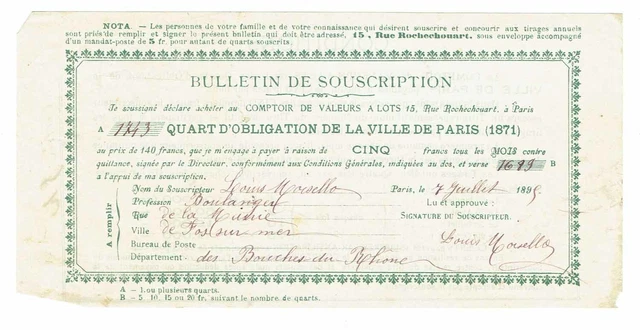 NOTA. — Les personnes de votre famille et de votre connaissance qui désirent souscrire et concourir aux tirages annuels
sont priés de remplir et signer le présent bulletin qui doit être adressé, 15, Rue Rochechouart, sous enveloppe accompagné
d'un mandat-poste de 5 fr. pour autant de quarts souscrits.
BULLETIN DE SOUSCRIPTION
Je soussigné déclare acheter au COMPTOIR DE VALEURS A LOTS 15, Rue Rochechouart, à Paris
A QUART D'OBLIGATION DE LA VILLE DE PARIS (1871)
au prix de 140 francs, que je m'engage à payer à raison de CINQ francs tous les MOIS contre
quittance, signée par le Directeur, conformément aux Conditions Générales, indiquées au dos, et verse B
a l'appui de ma souscription.
A remplir
Nom du Souscripteur Louis Moisello Paris, le 7 Juillet 189
Profession Boulanger Lu et approuvé :
Rue de la Mairie SIGNATURE DU SOUSCRIPTEUR.
Ville de Fos sur mer
Bureau de Poste Louis Moisello
Département des Bouches du Rhône
A — 1 ou plusieurs quarts.
B — 5, 10, 15 ou 20 fr. suivant le nombre de quarts.